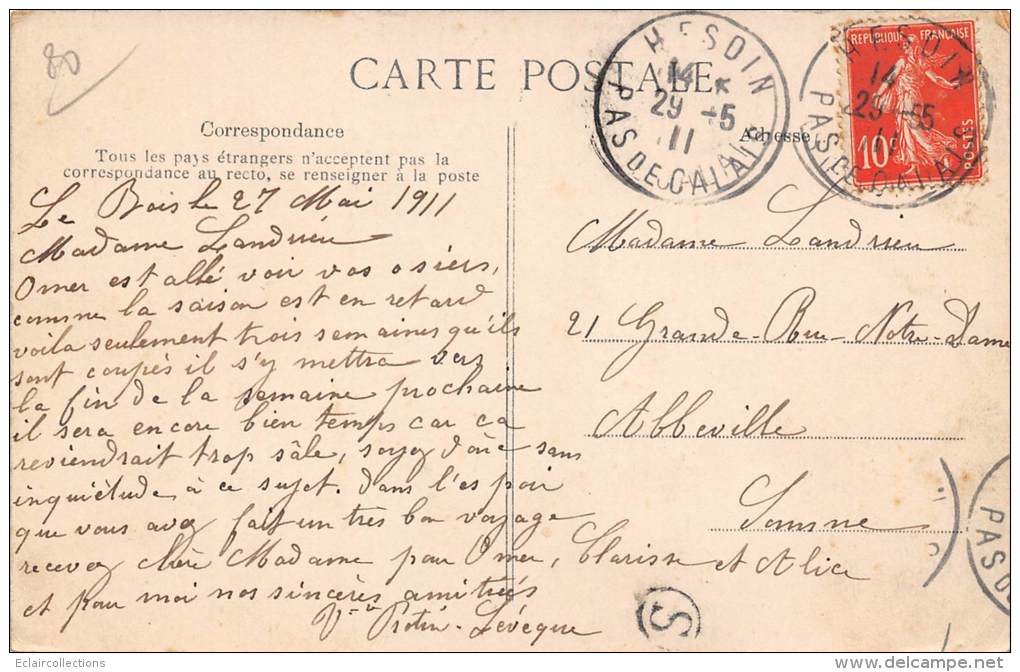 80
CARTE POSTALE
Correspondance
Tous les pays étrangers n'acceptent pas la
correspondance au recto, se renseigner à la poste
Le Bois le 27 Mai 1911
Madame Landrieu
Omer est allé voir vos osiers,
comme la saison est en retard
voila seulement trois semaines qu'ils
sont coupés il s'y mettra vers
la fin de la semaine prochaine
il sera encore bien temps car ca
reviendrait trop sâle, soyez donc sans
inquiétude à ce sujet. dans l'espoir
que vous avez fait un très bon voyage
recevez chère Madame pour Omer, Clarisse et Alice
et pour moi nos sincères amitiés
Vve Protin-Lévêque
Adresse
Madame Landrieu
21 Grande-Rue-Notre-Dame
Abbeville
Somme
HESDIN
14 *
29 -5
11
PAS DE CALAIS
HESDIN
14
29 -5
11
PAS DE CALAIS
REPUBLIQUE FRANÇAISE
10c
POSTES
PAS D
S
Eclaircollections
www.delcampe.net